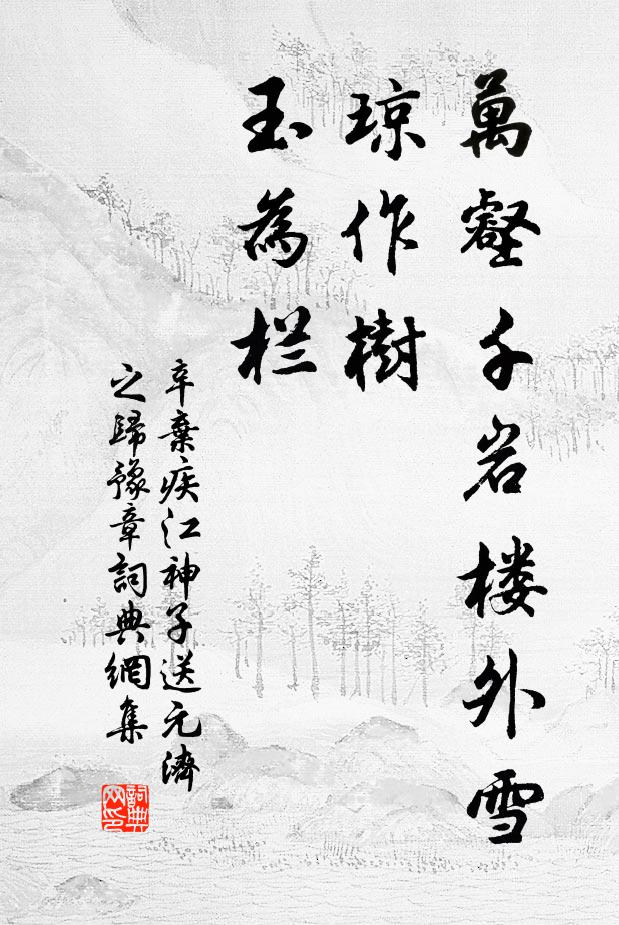 萬壑千岩楼外雪
琼作樹
玉為栏
辛棄疾江神子送元濟
之歸豫章詞典網集
詞典
网印